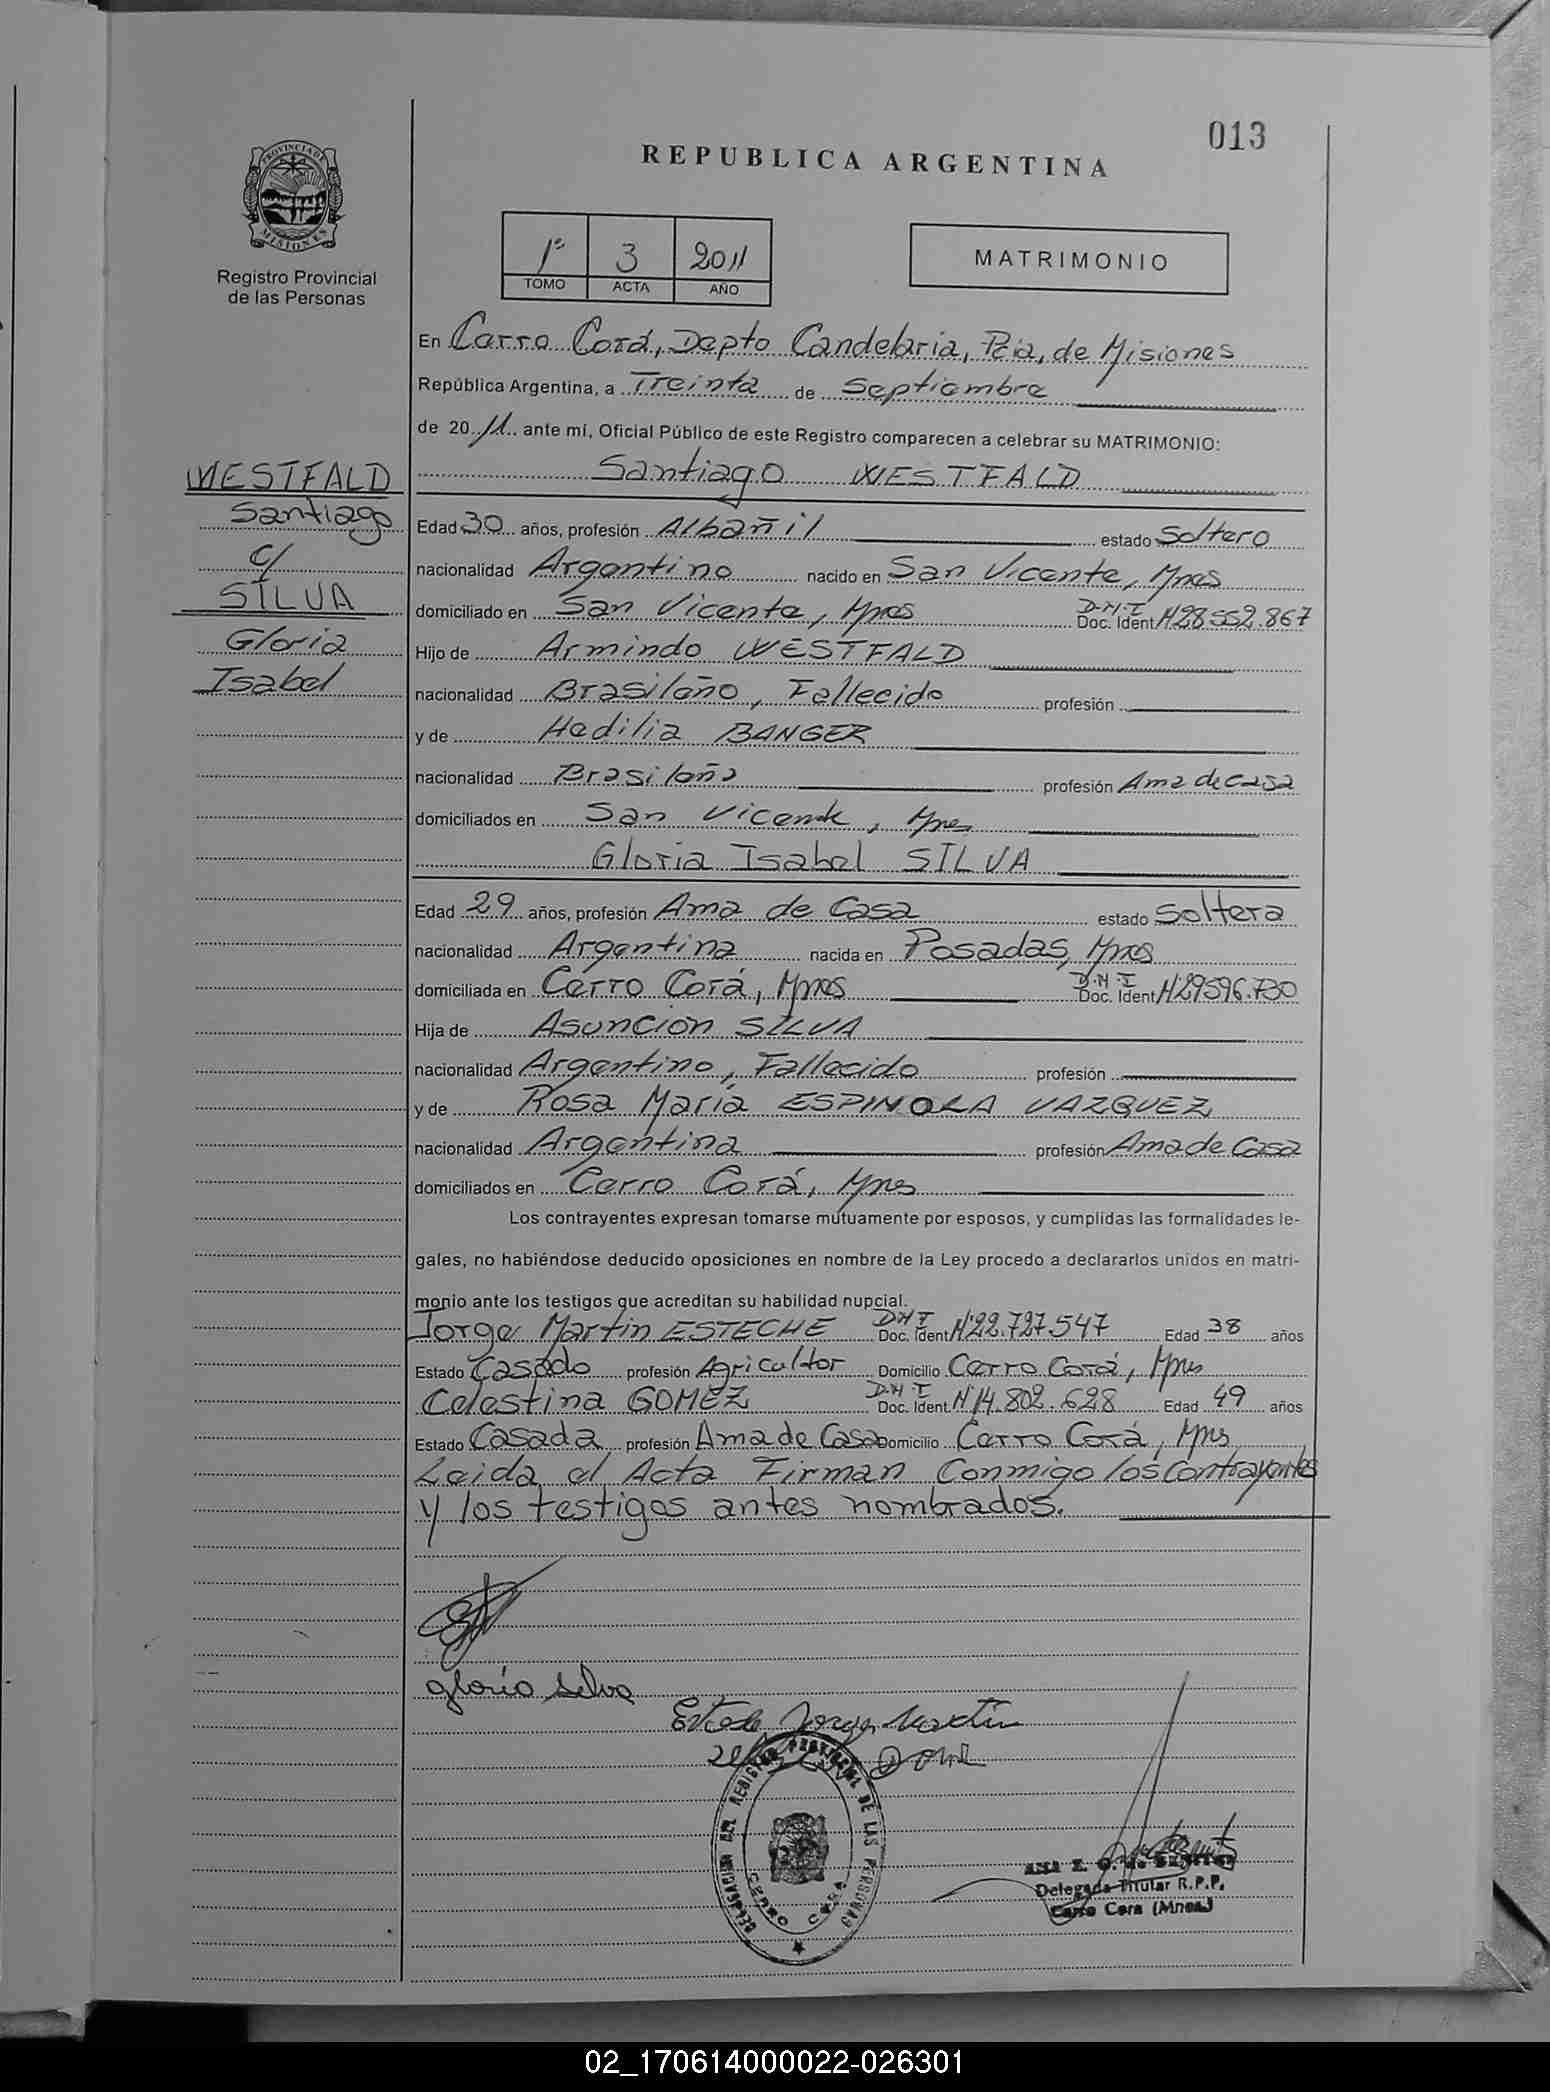 013
REPUBLICA ARGENTINA
PROVINCIA DE MISIONES
Registro Provincial
de las Personas
1º 3 2011
TOMO ACTA AÑO
MATRIMONIO
En Cerro Corá, Depto Candelaria, Pcia, de Misiones
República Argentina, a Treinta de Septiembre
de 2011 ante mí, Oficial Público de este Registro comparecen a celebrar su MATRIMONIO:
Santiago WESTFALD
WESTFALD
Santiago
c/
SILVA
Gloria
Isabel
Edad 30 años, profesión Albañil estado Soltero
nacionalidad Argentino nacido en San Vicente, Mnes
domiciliado en San Vicente, Mnes D.N.I Doc. Ident Nº28.552.867
Hijo de Armindo WESTFALD
nacionalidad Brasileño, Fallecido profesión
y de Hedilia BANGER
nacionalidad Brasileña profesión Ama de casa
domiciliados en San Vicente, Mnes
Gloria Isabel SILVA
Edad 29 años, profesión Ama de Casa estado Soltera
nacionalidad Argentina nacida en Posadas, Mnes
domiciliada en Cerro Corá, Mnes D.N.I Doc. Ident Nº29.596.730
Hija de Asunción SILVA
nacionalidad Argentino, Fallecido profesión
y de Rosa María ESPINOLA VAZQUEZ
nacionalidad Argentina profesión Ama de Casa
domiciliados en Cerro Corá, Mnes
Los contrayentes expresan tomarse mutuamente por esposos, y cumplidas las formalidades le-
gales, no habiéndose deducido oposiciones en nombre de la Ley procedo a declararlos unidos en matri-
monio ante los testigos que acreditan su habilidad nupcial.
Jorge Martin ESTECHE D.N.I Doc. Ident Nº22.727.547 Edad 38 años
Estado Casado profesión Agricultor Domicilio Cerro Corá, Mnes
Celestina GOMEZ D.N.I Doc. Ident. Nº14.802.628 Edad 49 años
Estado Casada profesión Ama de Casa Domicilio Cerro Corá, Mnes
Leida el Acta Firman Conmigo los contrayentes
y los testigos antes nombrados.
gloria silva
Esteche Jorge Martin
DELEGACION DEL REGISTRO PROVINCIAL DE LAS PERSONAS
CERRO CORA
ANA E. G. de
Delegada Titular R.P.P.
Cerro Cora (Mnes.)
02_170614000022-026301